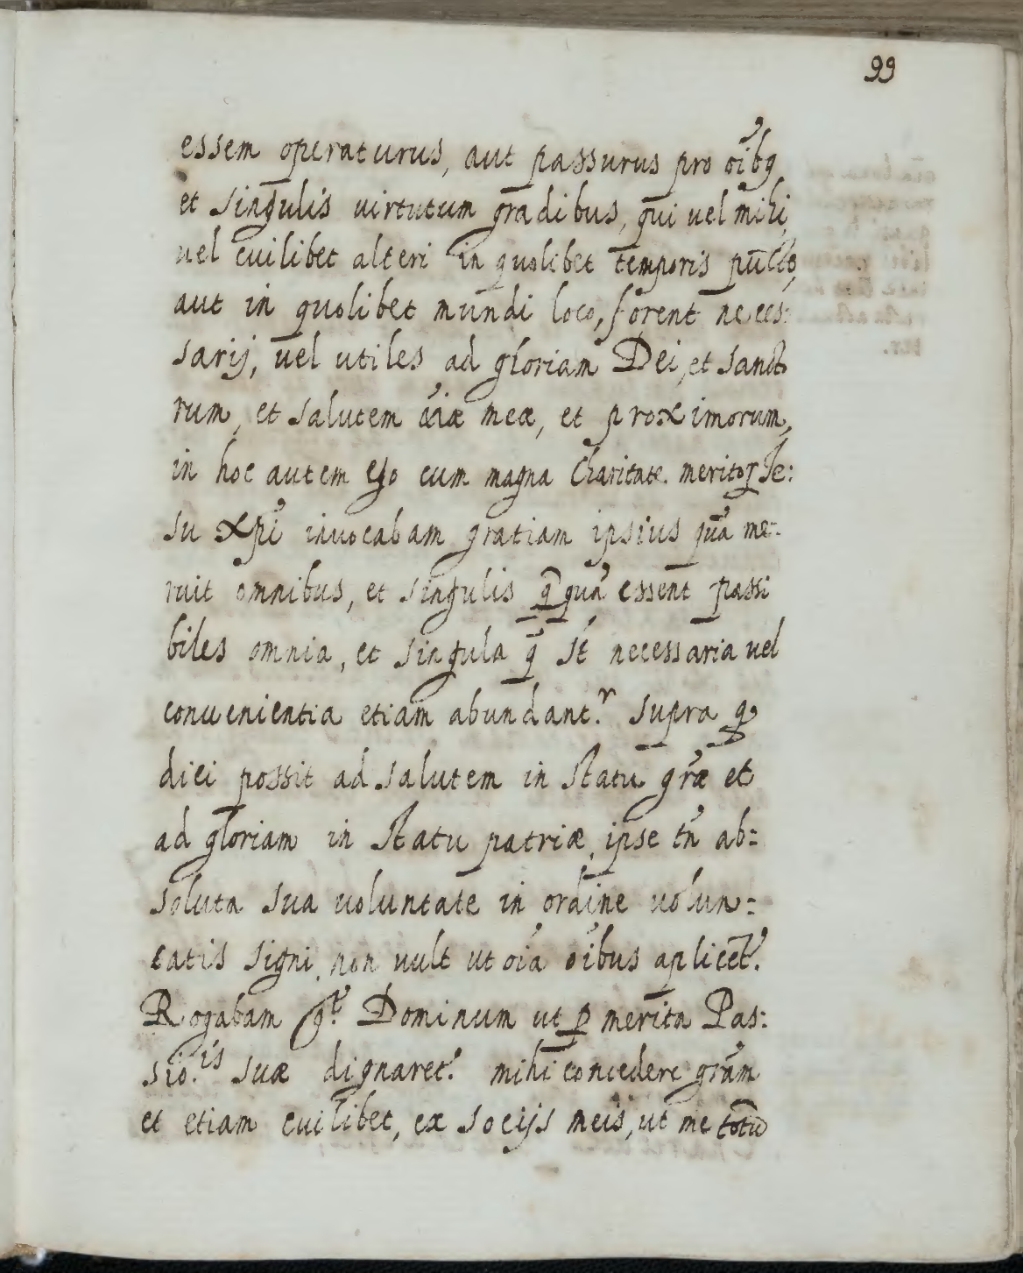 99
essem operaturus, aut passurus pro oĩbq
et singulis uirtutum gradibus, qui uel mihi,
uel cuilibet alteri in quolibet temporis pũcto,
aut in quolibet mundi loco, forent neces:
sarij, uel utiles ad gloriam Dei, et Sancto
rum, et salutem aĩæ meæ, et proximorum,
in hoc autem ego cum magna Charitate. meritoꝝ Je:
su Xpĩ inuocabam gratiam ipsius quã me-
ruit omnibus, et singulis ꝗ̃quã essent passi
biles omnia, et singula q̃ st̃ necessaria uel
conuenientia etiam abundant.ʳ supra ꝙ
dici possit ad salutem in statu grã̃æ et
ad gloriam in statu patriæ, ipse tñ ab=
soluta sua uoluntate in ordine uolun=
tatis signi, non uult ut oĩa oĩbus aplicet̃.
Rogabam g.ᵗ Dominum ut ꝑ merita Pas:
sio.ⁱˢ suæ dignaret.ʳ mihi concedere grãm
et etiam cuilibet, ex socijs meis, ut me totũ